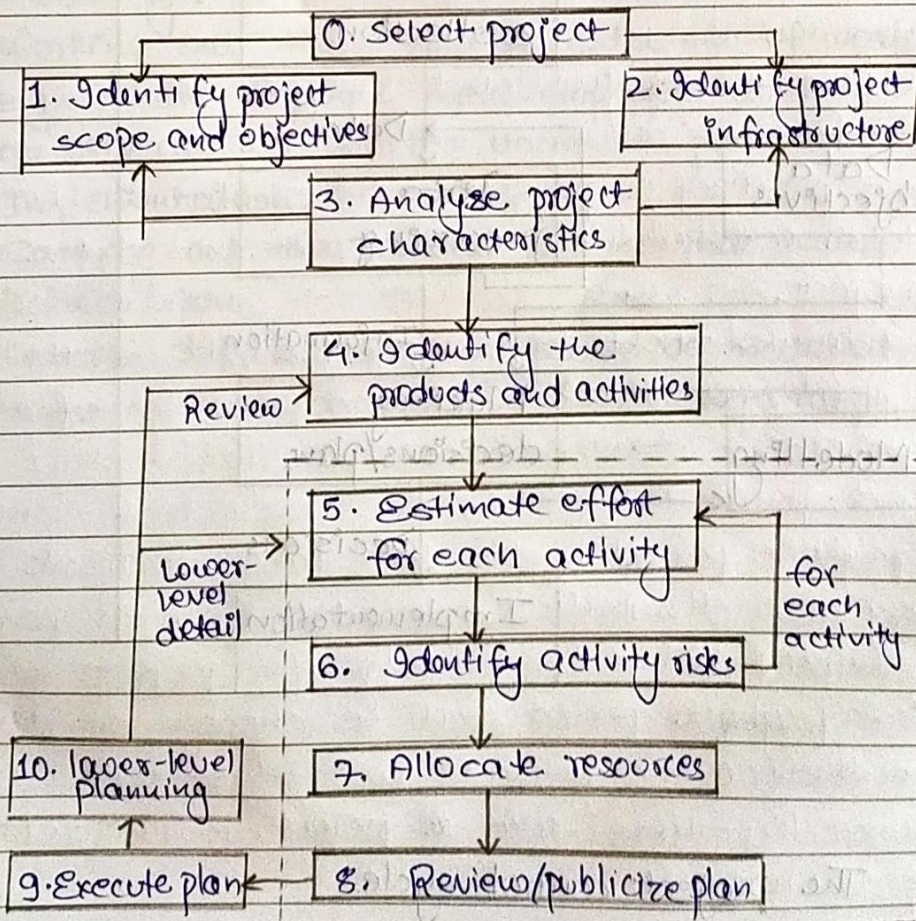 0. Select project
1. Identify project
scope and objectives
2. Identify project
infrastructure
3. Analyse project
characteristics
4. Identify the
products and activities
Review
5. Estimate effort
for each activity
Lower-
level
detail
for
each
activity
6. Identify activity risks
10. lower-level
planning
7. Allocate resources
9. Execute plan
8. Review/publicize plan